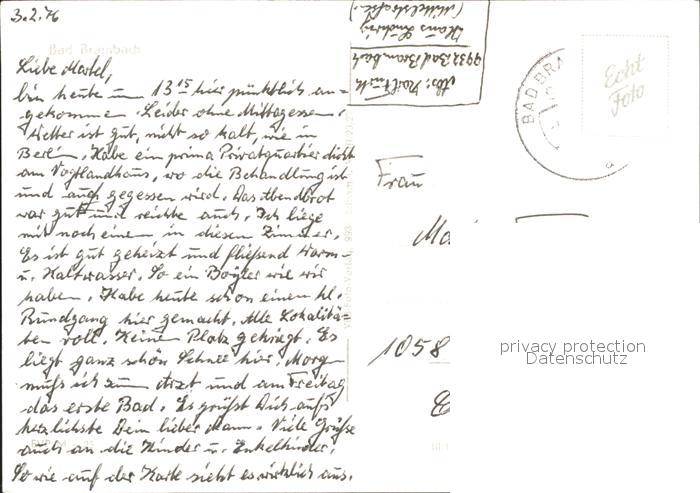 3.2.76
Bad Brambach
Liebe Martel,
bin heute um 13 15 hier pünktlich an-
gekommen. Leider ohne Mittagessen.
Wetter ist gut, nicht so kalt, wie in
Berlin. Habe ein prima Privatquartier dicht
am Vogtlandhaus, wo die Behandlung ist
und auch gegessen wird. Das Abendbrot
war gut und reichte auch. Ich liege
mit noch einem in diesen Zimmer.
Es ist gut geheizt und fließend Warm-
u. Kaltwasser. So ein Boyler wie wir
haben. Habe heute schon einen kl.
Rundgang hier gemacht. Alle Lokalitä-
ten voll. Keinen Platz gekriegt. Es
liegt ganz schön Schnee hier. Morgen
muß ich zum Arzt und am Freitag
das erste Bad. Es grüßt Dich aufs
herzlichste Dein lieber Mann. Viele Grüße
auch an die Kinder u. Enkelkinder.
So wie auf der Karte sieht es wirklich aus.
Abs:
9932 Bad Brambach
Haus Ludwig
(Mittelstraße)
BAD BRA
Echt
Foto
Frau
Ma
1058
privacy protection
Datenschutz